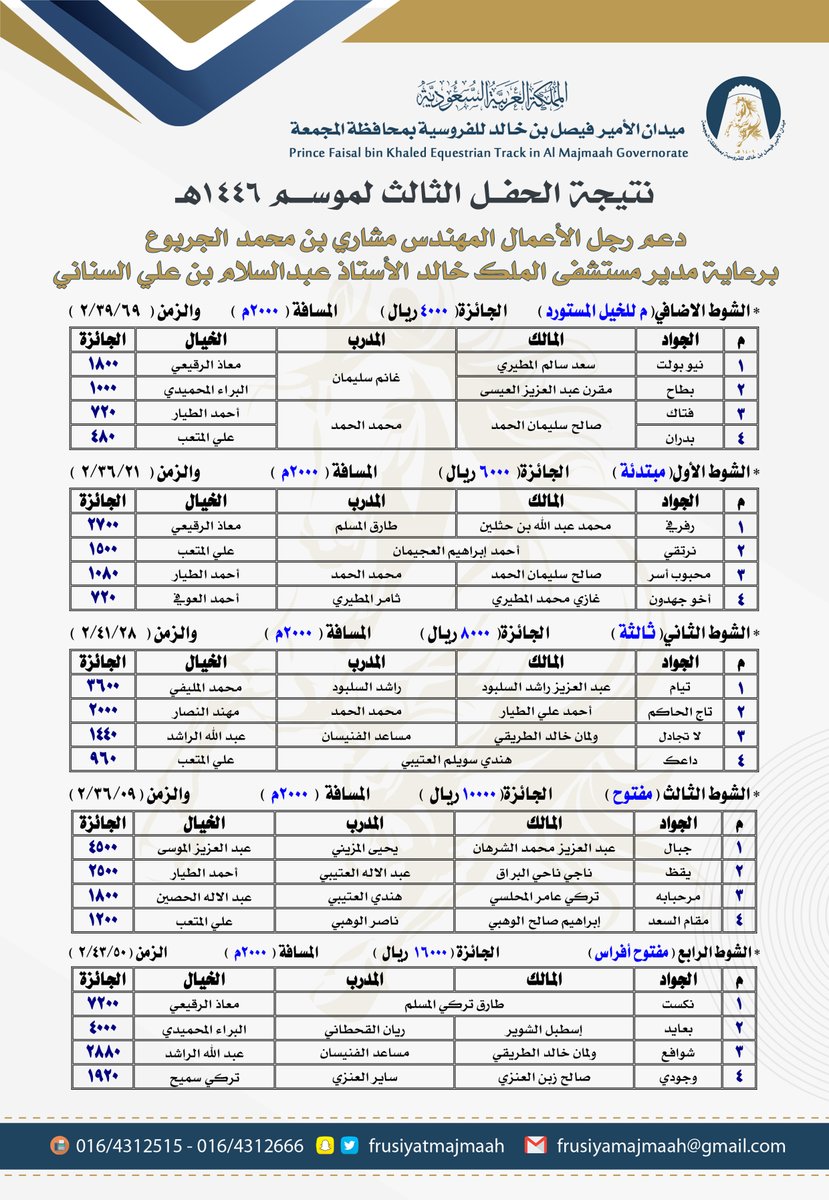 المملكة العربية السعودية
ميدان الأمير فيصل بن خالد للفروسية بمحافظة المجمعة
Prince Faisal bin Khaled Equestrian Track in Al Majmaah Governorate
نتيجة الحفل الثالث لموسم ١٤٤٦هـ
دعم رجل الأعمال المهندس مشاري بن محمد الجربوع
برعاية مدير مستشفى الملك خالد الأستاذ عبدالسلام بن علي السناني
* الشوط الاضافي( م للخيل المستورد ) الجائزة( ٤٠٠٠ ريال) المسافة ( ٢٠٠٠م ) والزمن ( ٢/٣٩/٦٩ )
م الجواد المالك المدرب الخيال الجائزة
١ نيو بولت سعد سالم المطيري غانم سليمان معاذ الرقيعي ١٨٠٠
٢ بطاح مقرن عبد العزيز العيسى البراء المحميدي ١٠٠٠
٣ فتاك صالح سليمان الحمد محمد الحمد أحمد الطيار ٧٢٠
٤ بدران علي المتعب ٤٨٠
* الشوط الأول( مبتدئة ) الجائزة( ٦٠٠٠ ريال) المسافة ( ٢٠٠٠م ) والزمن ( ٢/٣٦/٢١ )
م الجواد المالك المدرب الخيال الجائزة
١ رفرفي محمد عبد الله بن حثلين طارق المسلم معاذ الرقيعي ٢٧٠٠
٢ نرتقي أحمد إبراهيم العجيمان علي المتعب ١٥٠٠
٣ محبوب أسر صالح سليمان الحمد محمد الحمد أحمد الطيار ١٠٨٠
٤ أخو جهدون غازي محمد المطيري ثامر المطيري أحمد العوفي ٧٢٠
* الشوط الثاني( ثالثة ) الجائزة( ٨٠٠٠ ريال) المسافة ( ٢٠٠٠م ) والزمن ( ٢/٤١/٢٨ )
م الجواد المالك المدرب الخيال الجائزة
١ تيام عبد العزيز راشد السلبود راشد السلبود محمد المليفي ٣٦٠٠
٢ تاج الحاكم أحمد علي الطيار محمد الحمد مهند النصار ٢٠٠٠
٣ لا تجادل ولمان خالد الطريقي مساعد الفنيسان عبد الله الراشد ١٤٤٠
٤ داعك هندي سويلم العتيبي علي المتعب ٩٦٠
* الشوط الثالث ( مفتوح ) الجائزة( ١٠٠٠٠ ريال ) المسافة ( ٢٠٠٠م ) والزمن ( ٢/٣٦/٠٩ )
م الجواد المالك المدرب الخيال الجائزة
١ جبال عبد العزيز محمد الشرهان يحيى المزيني عبد العزيز الموسى ٤٥٠٠
٢ يقظ ناجي ناحي البراق عبد الاله العتيبي أحمد الطيار ٢٥٠٠
٣ مرحبابه تركي عامر المحلسي هندي العتيبي عبد الاله الحصين ١٨٠٠
٤ مقام السعد إبراهيم صالح الوهبي ناصر الوهبي علي المتعب ١٢٠٠
* الشوط الرابع ( مفتوح أفراس ) الجائزة ( ١٦٠٠٠ ريال ) المسافة ( ٢٠٠٠م ) الزمن ( ٢/٤٣/٥٠ )
م الجواد المالك المدرب الخيال الجائزة
١ نكست طارق تركي المسلم معاذ الرقيعي ٧٢٠٠
٢ بعايد إسطبل الشوير ريان القحطاني البراء المحميدي ٤٠٠٠
٣ شوافع ولمان خالد الطريقي مساعد الفنيسان عبد الله الراشد ٢٨٨٠
٤ وجودي صالح زبن العنزي ساير العنزي تركي سميح ١٩٢٠
016/4312515 - 016/4312666 frusiyatmajmaah frusiyamajmaah@gmail.com